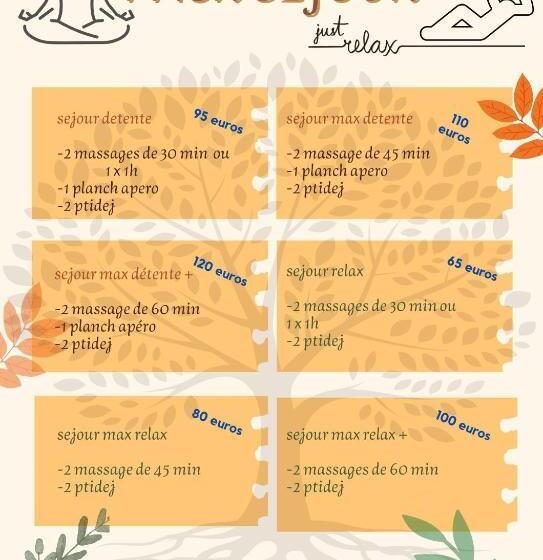 just
relax
sejour detente
95 euros
-2 massages de 30 min ou
1 x 1h
-1 planch apero
-2 ptidej
sejour max detente
110
euros
-2 massage de 45 min
-1 planch apero
-2 ptidej
sejour max détente +
120 euros
-2 massage de 60 min
-1 planch apéro
-2 ptidej
sejour relax
65 euros
-2 massages de 30 min ou
1 x 1h
-2 ptidej
sejour max relax
80 euros
-2 massage de 45 min
-2 ptidej
sejour max relax +
100 euros
-2 massages de 60 min
-2 ptidej